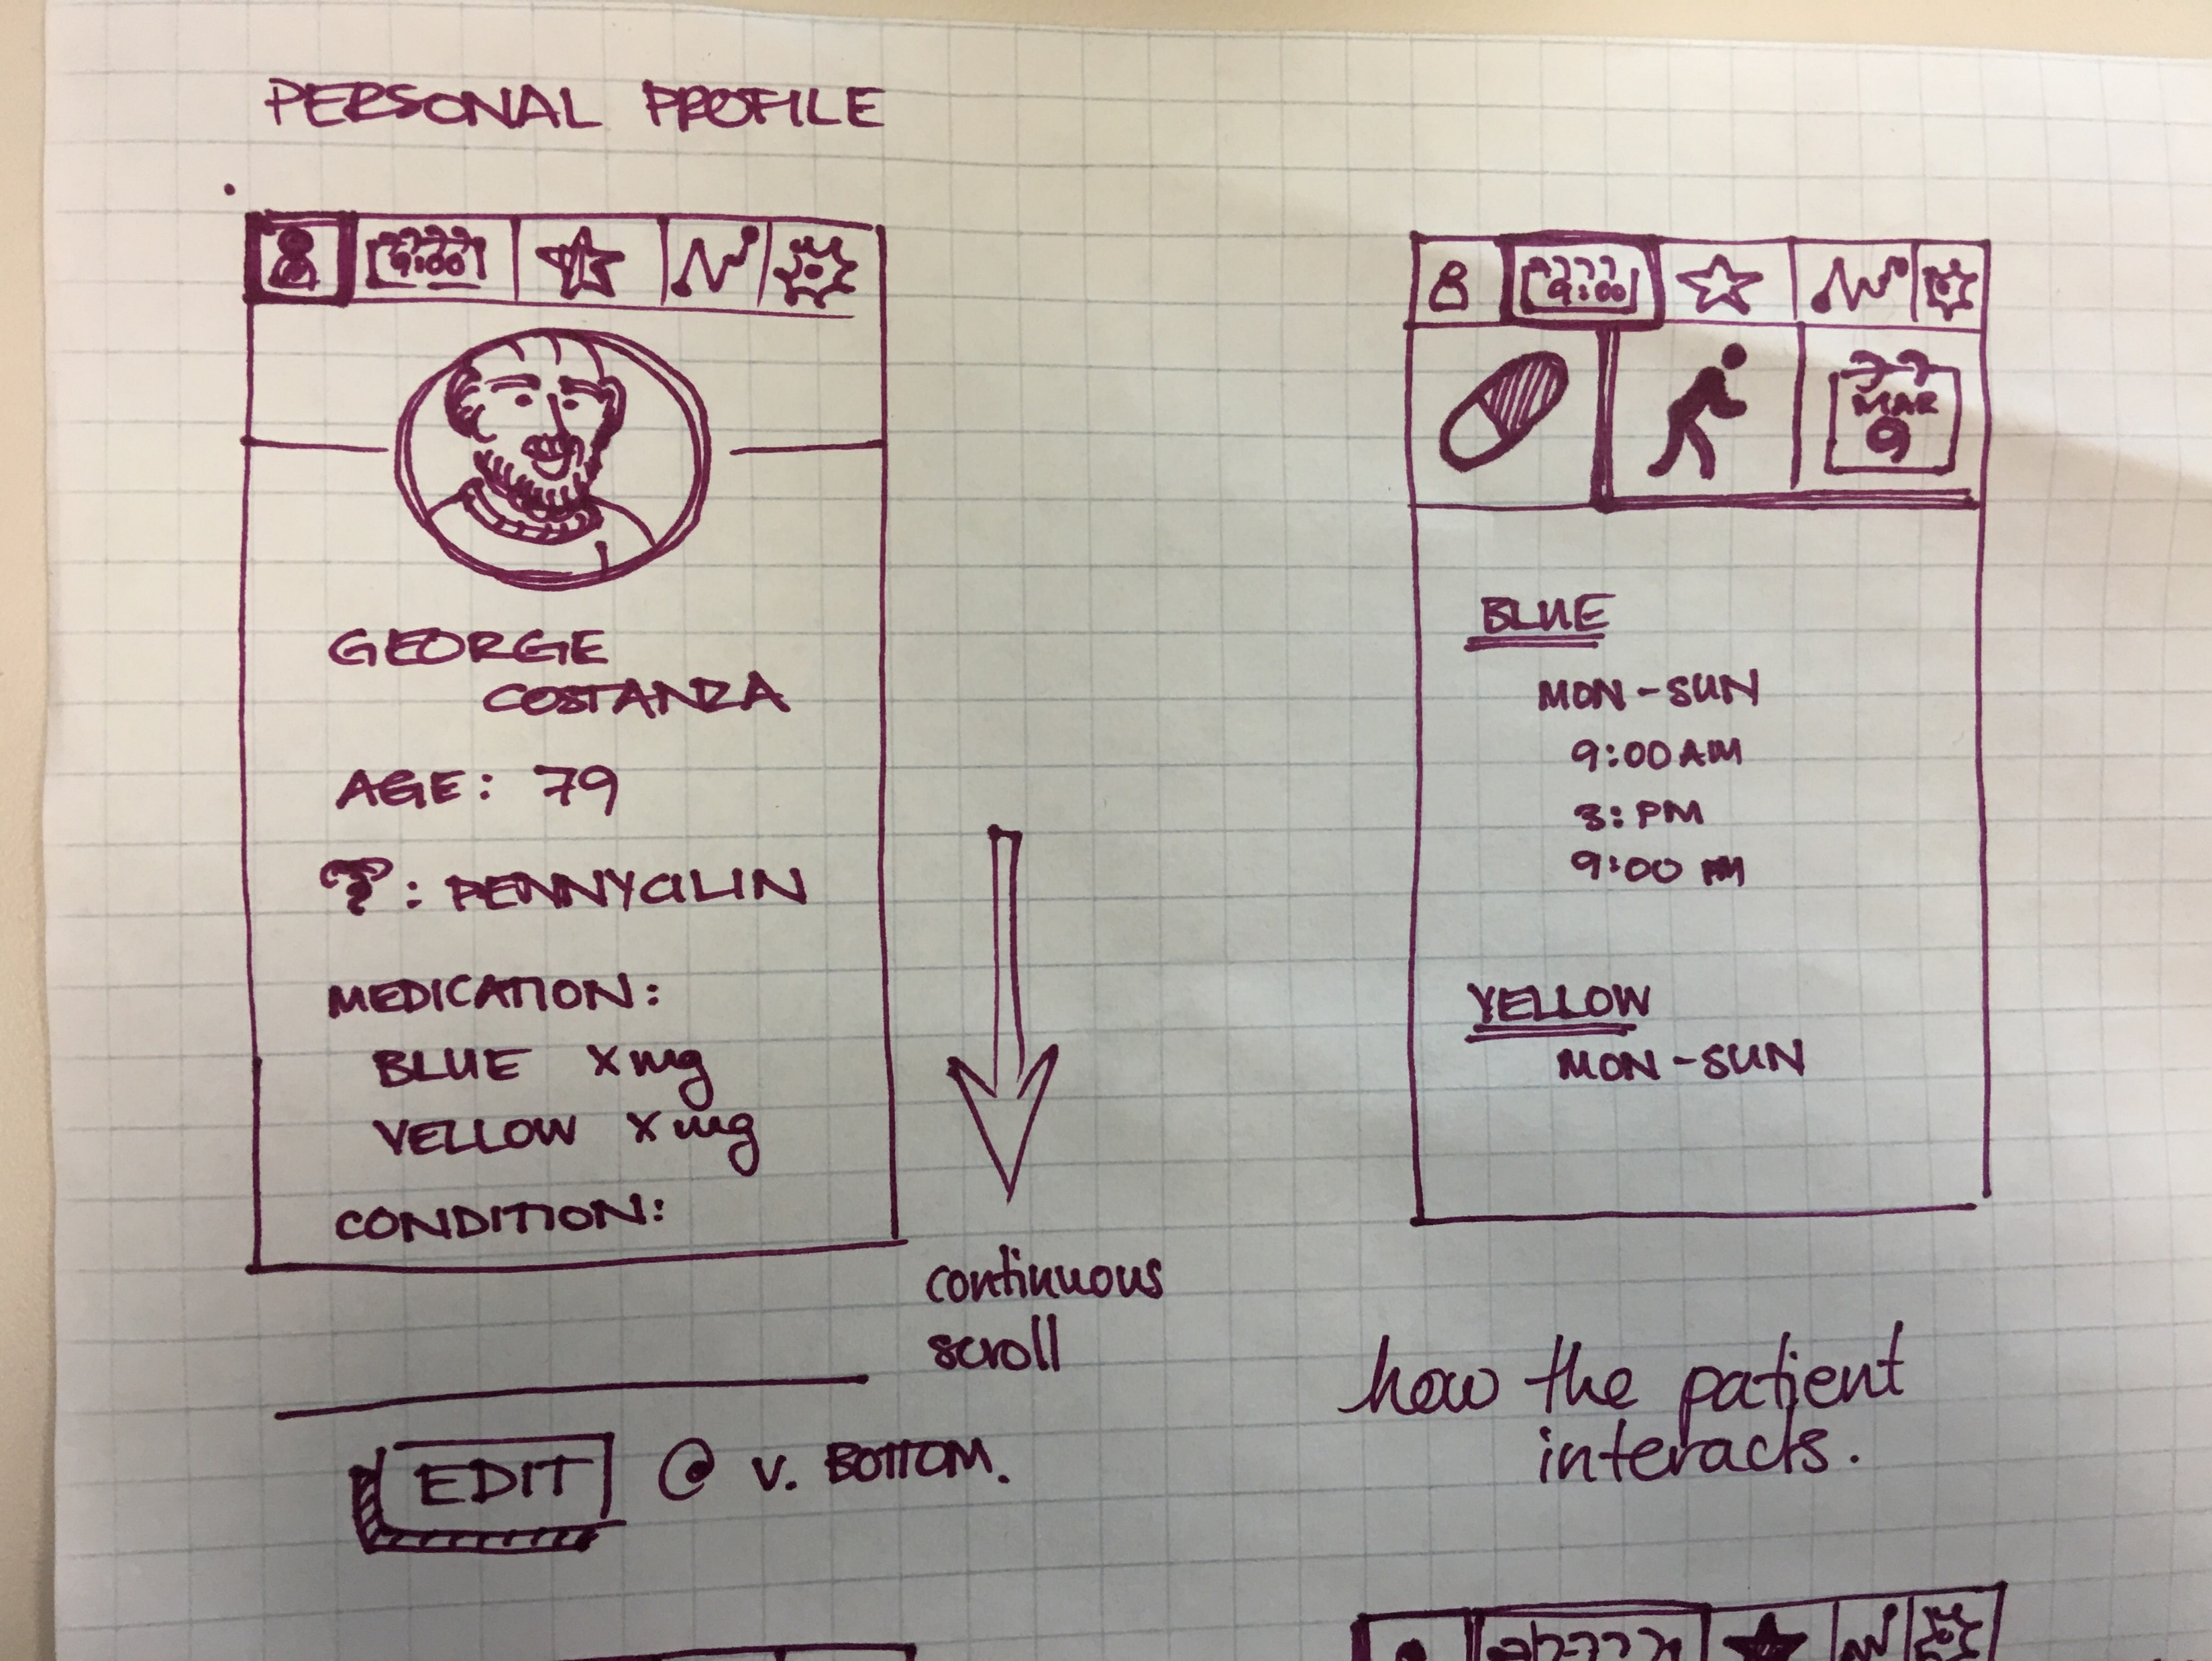 PERSONAL PROFILE
9:00
GEORGE
COSTANZA
AGE: 79
: PENNYCILIN
MEDICATION:
BLUE X mg
YELLOW X mg
CONDITION:
continuous
scroll
EDIT @ V. BOTTOM.
9:00
MAR
9
BLUE
MON-SUN
9:00 AM
3: PM
9:00 PM
YELLOW
MON-SUN
how the patient
interacts.